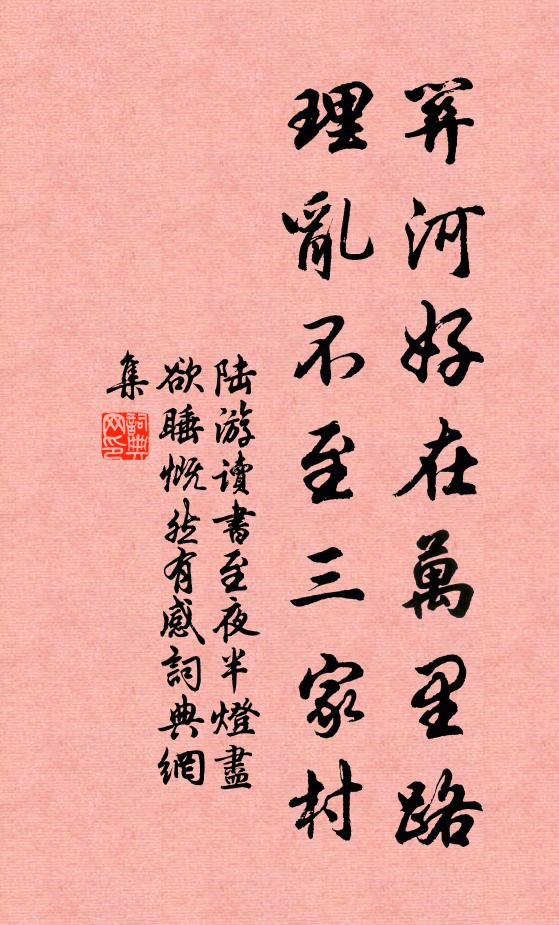 關河好在萬里路
理亂不至三家村
陸游讀書至夜半燈盡
欲睡慨然有感詞典網
集
詞典
网印